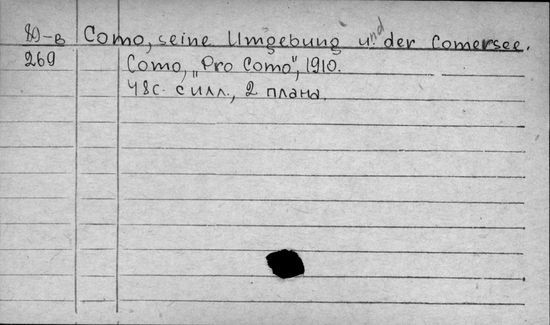 80-В Como, seine Umgebung und der Comersee.
269 Como, „Pro Como", 1910.
48с. с илл., 2 плана.